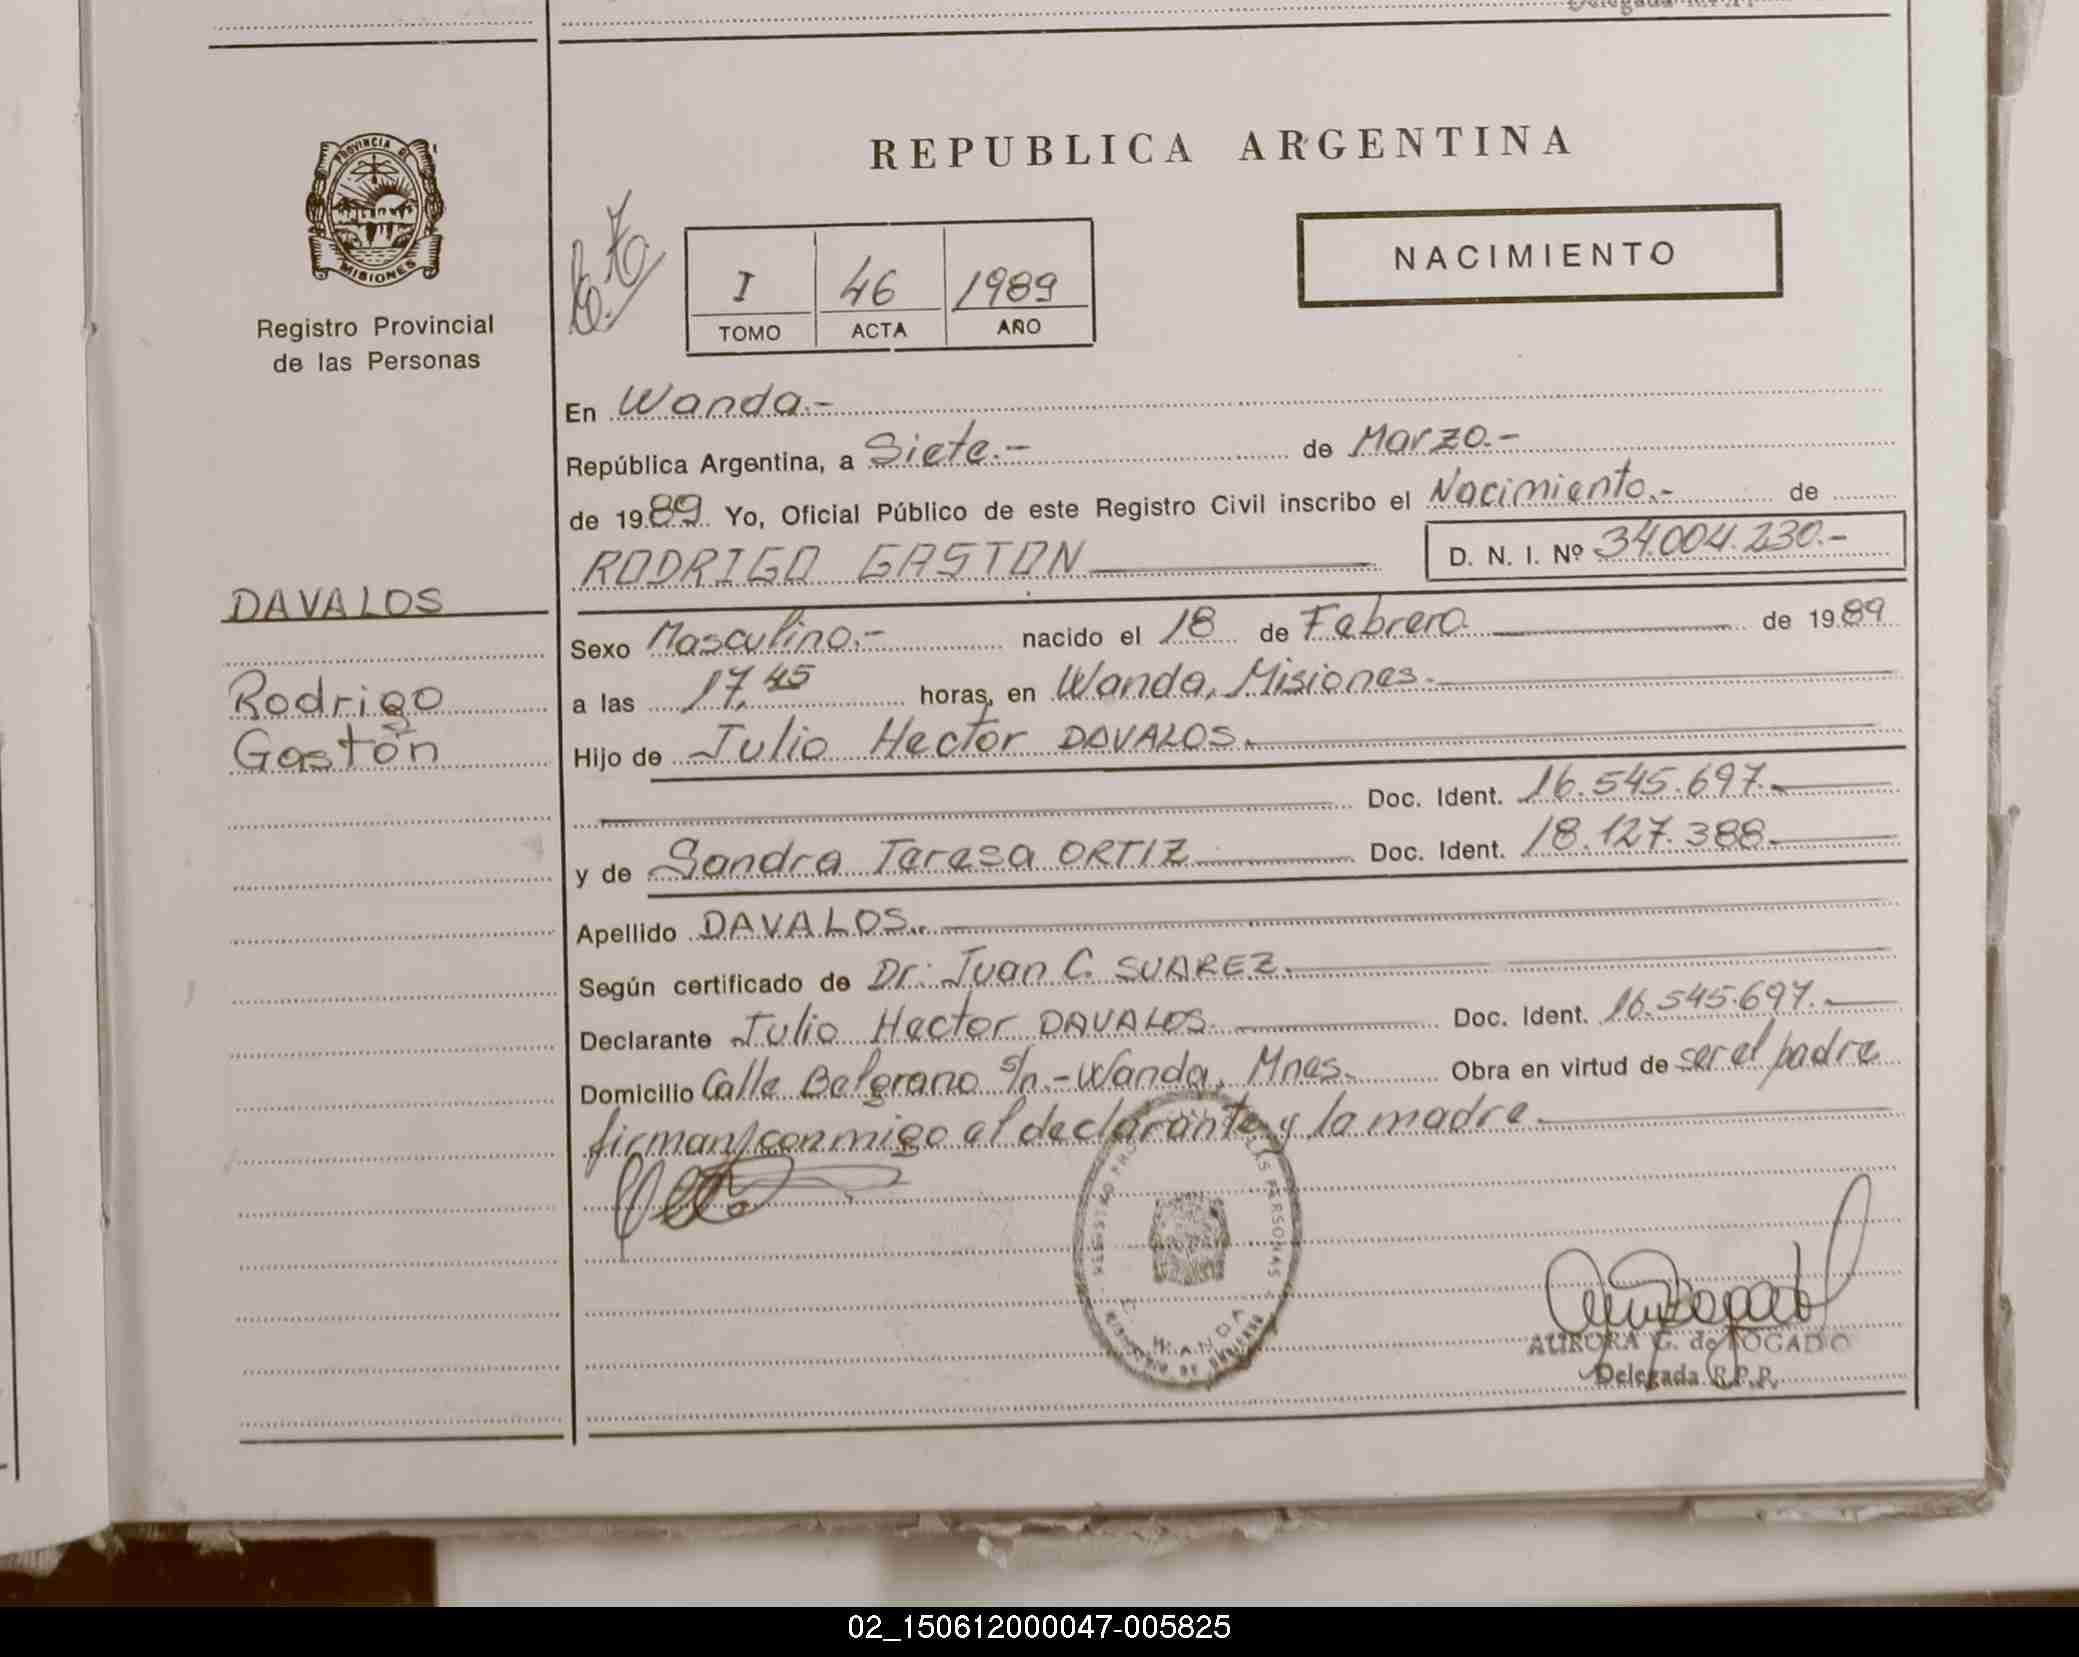 Delegada R.P.P.
PROVINCIA DE
MISIONES
Registro Provincial
de las Personas
REPUBLICA ARGENTINA
NACIMIENTO
I 46 1989
TOMO ACTA AÑO
En Wanda.-
República Argentina, a Siete.- de Marzo.-
de 1989 Yo, Oficial Público de este Registro Civil inscribo el Nacimiento.- de
RODRIGO GASTON D. N. I. Nº 34.004.230.-
DAVALOS
Rodrigo
Gastón
Sexo Masculino.- nacido el 18 de Febrero de 1989
a las 17,45 horas, en Wanda, Misiones.
Hijo de Julio Hector DAVALOS.
Doc. Ident. 16.545.697.
y de Sandra Teresa ORTIZ Doc. Ident. 18.127.388
Apellido DAVALOS.
Según certificado de Dr. Juan C. SUAREZ.
Declarante Julio Hector DAVALOS Doc. Ident. 16.545.697.
Domicilio Calle Belgrano s/n.-Wanda, Mnes. Obra en virtud de ser el padre
firman conmigo el declarante y la madre.
REGISTRO PROVINCIAL DE LAS PERSONAS
WANDA
MINISTERIO DE GOBIERNO
AURORA G. de TOGADO
Delegada R.P.P.
02_150612000047-005825